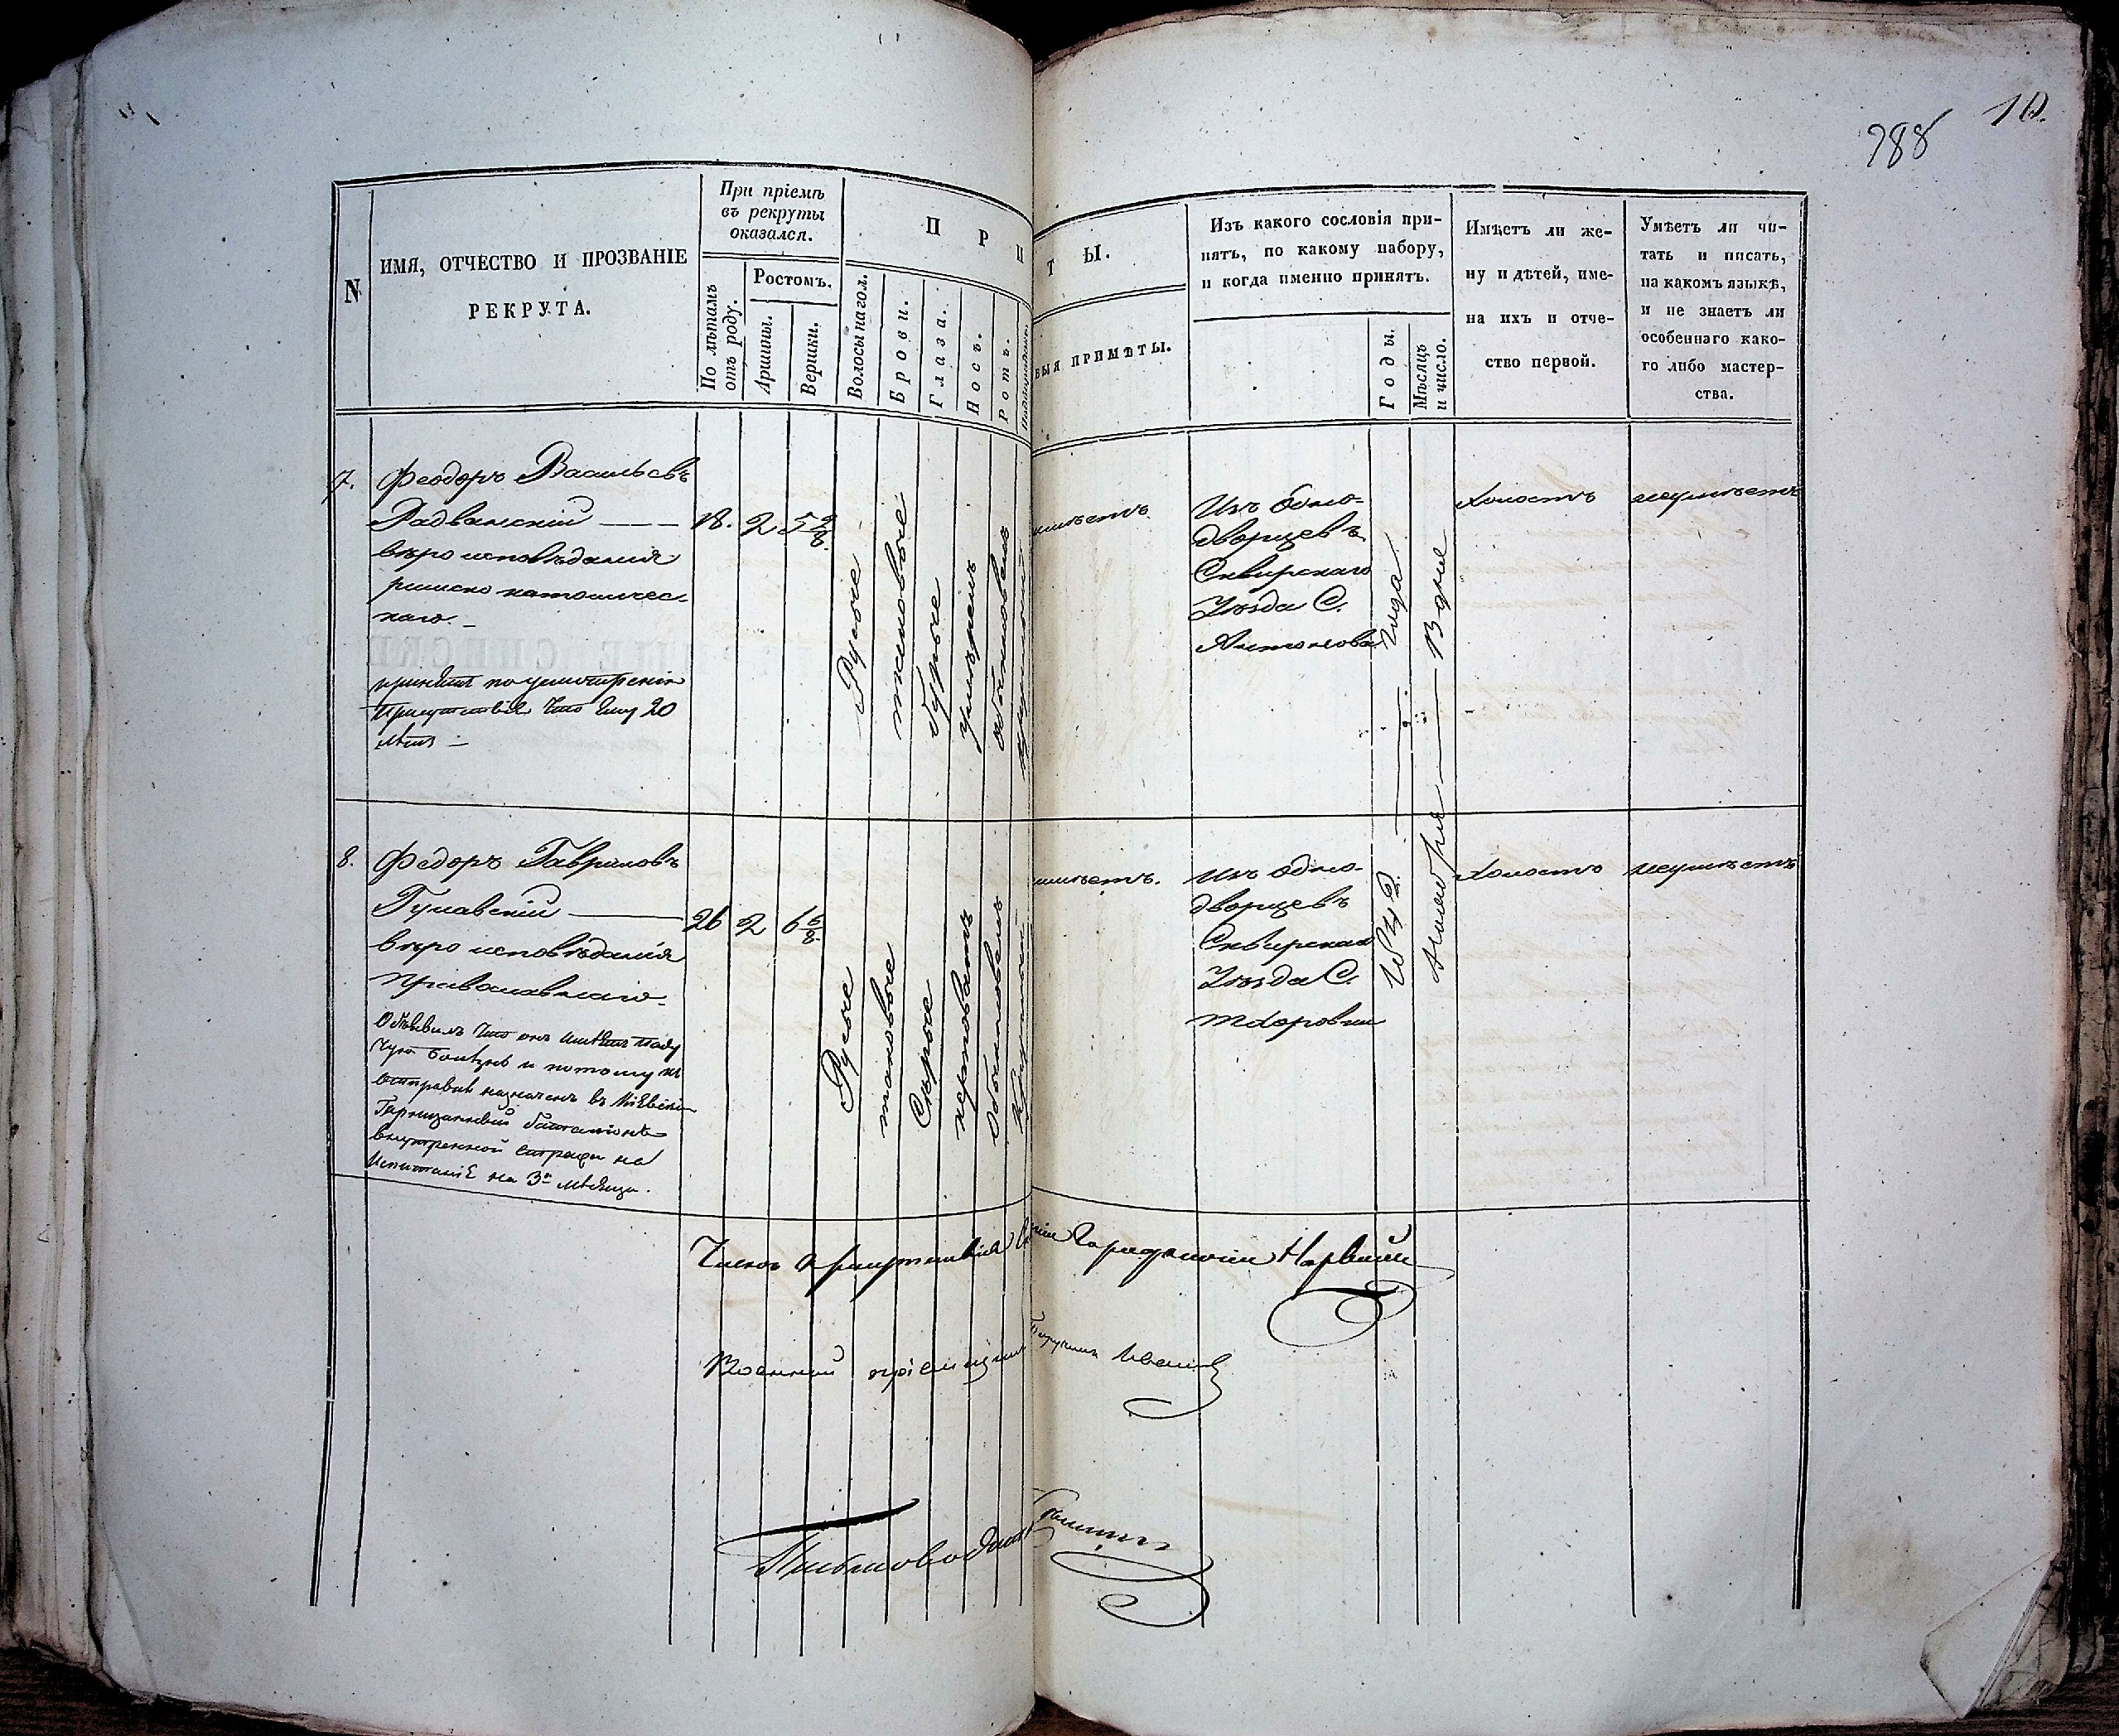 10.
988
N
ИМЯ, ОТЧЕСТВО И ПРОЗВАНІЕ
РЕКРУТА.
При пріемѣ
въ рекруты
оказался.
По лѣтамъ
отъ роду.
Ростомъ.
Аршины.
Вершки.
П Р И
Волосы на гол.
Брови.
Глаза.
Носъ.
Ротъ.
Т Ы.
ВЫЯ ПРИМѢТЫ.
Изъ какого сословія при-
нятъ, по какому набору,
и когда именно принятъ.
Годы.
Мѣсяцъ
и число.
Имѣетъ ли же-
ну и дѣтей, име-
на ихъ и отче-
ство первой.
Умѣетъ ли чи-
тать и писать,
на какомъ языкѣ,
и не знаетъ ли
особеннаго како-
го либо мастер-
ства.
7.
Феодоръ Васильевъ
Радванскій
вѣро исповѣданія
римско католичес-
каго
принятъ по усмотренію
Присутствія что ему 20
лѣтъ
18.
2
5 2/8.
Русые
бурые
умѣренъ
обыкновенъ
Изъ одно-
дворцевъ
Сквирскаго
Уѣзда С.
Антонова
1842 года
В дня
Холостъ
неумѣетъ
8.
Федоръ Гавриловъ
Гулавскій
вѣро исповѣданія
Православнаго
Объявилъ что онъ имѣетъ паду
чую болѣзнь и потому
отправлѣ назначенъ въ Кіевскій
Гарнизонный баталіонъ
внутренной стражи на
Испытаніе на 3и мѣсяца.
26
2
6 6/8.
Русые
Сѣрые
Обыкновенъ
Изъ одно-
дворцевъ
Сквирскаго
Уѣзда С.
Холостъ
неумѣетъ
Членъ присутствія
Военный пріемщикъ Поручикъ Иванов